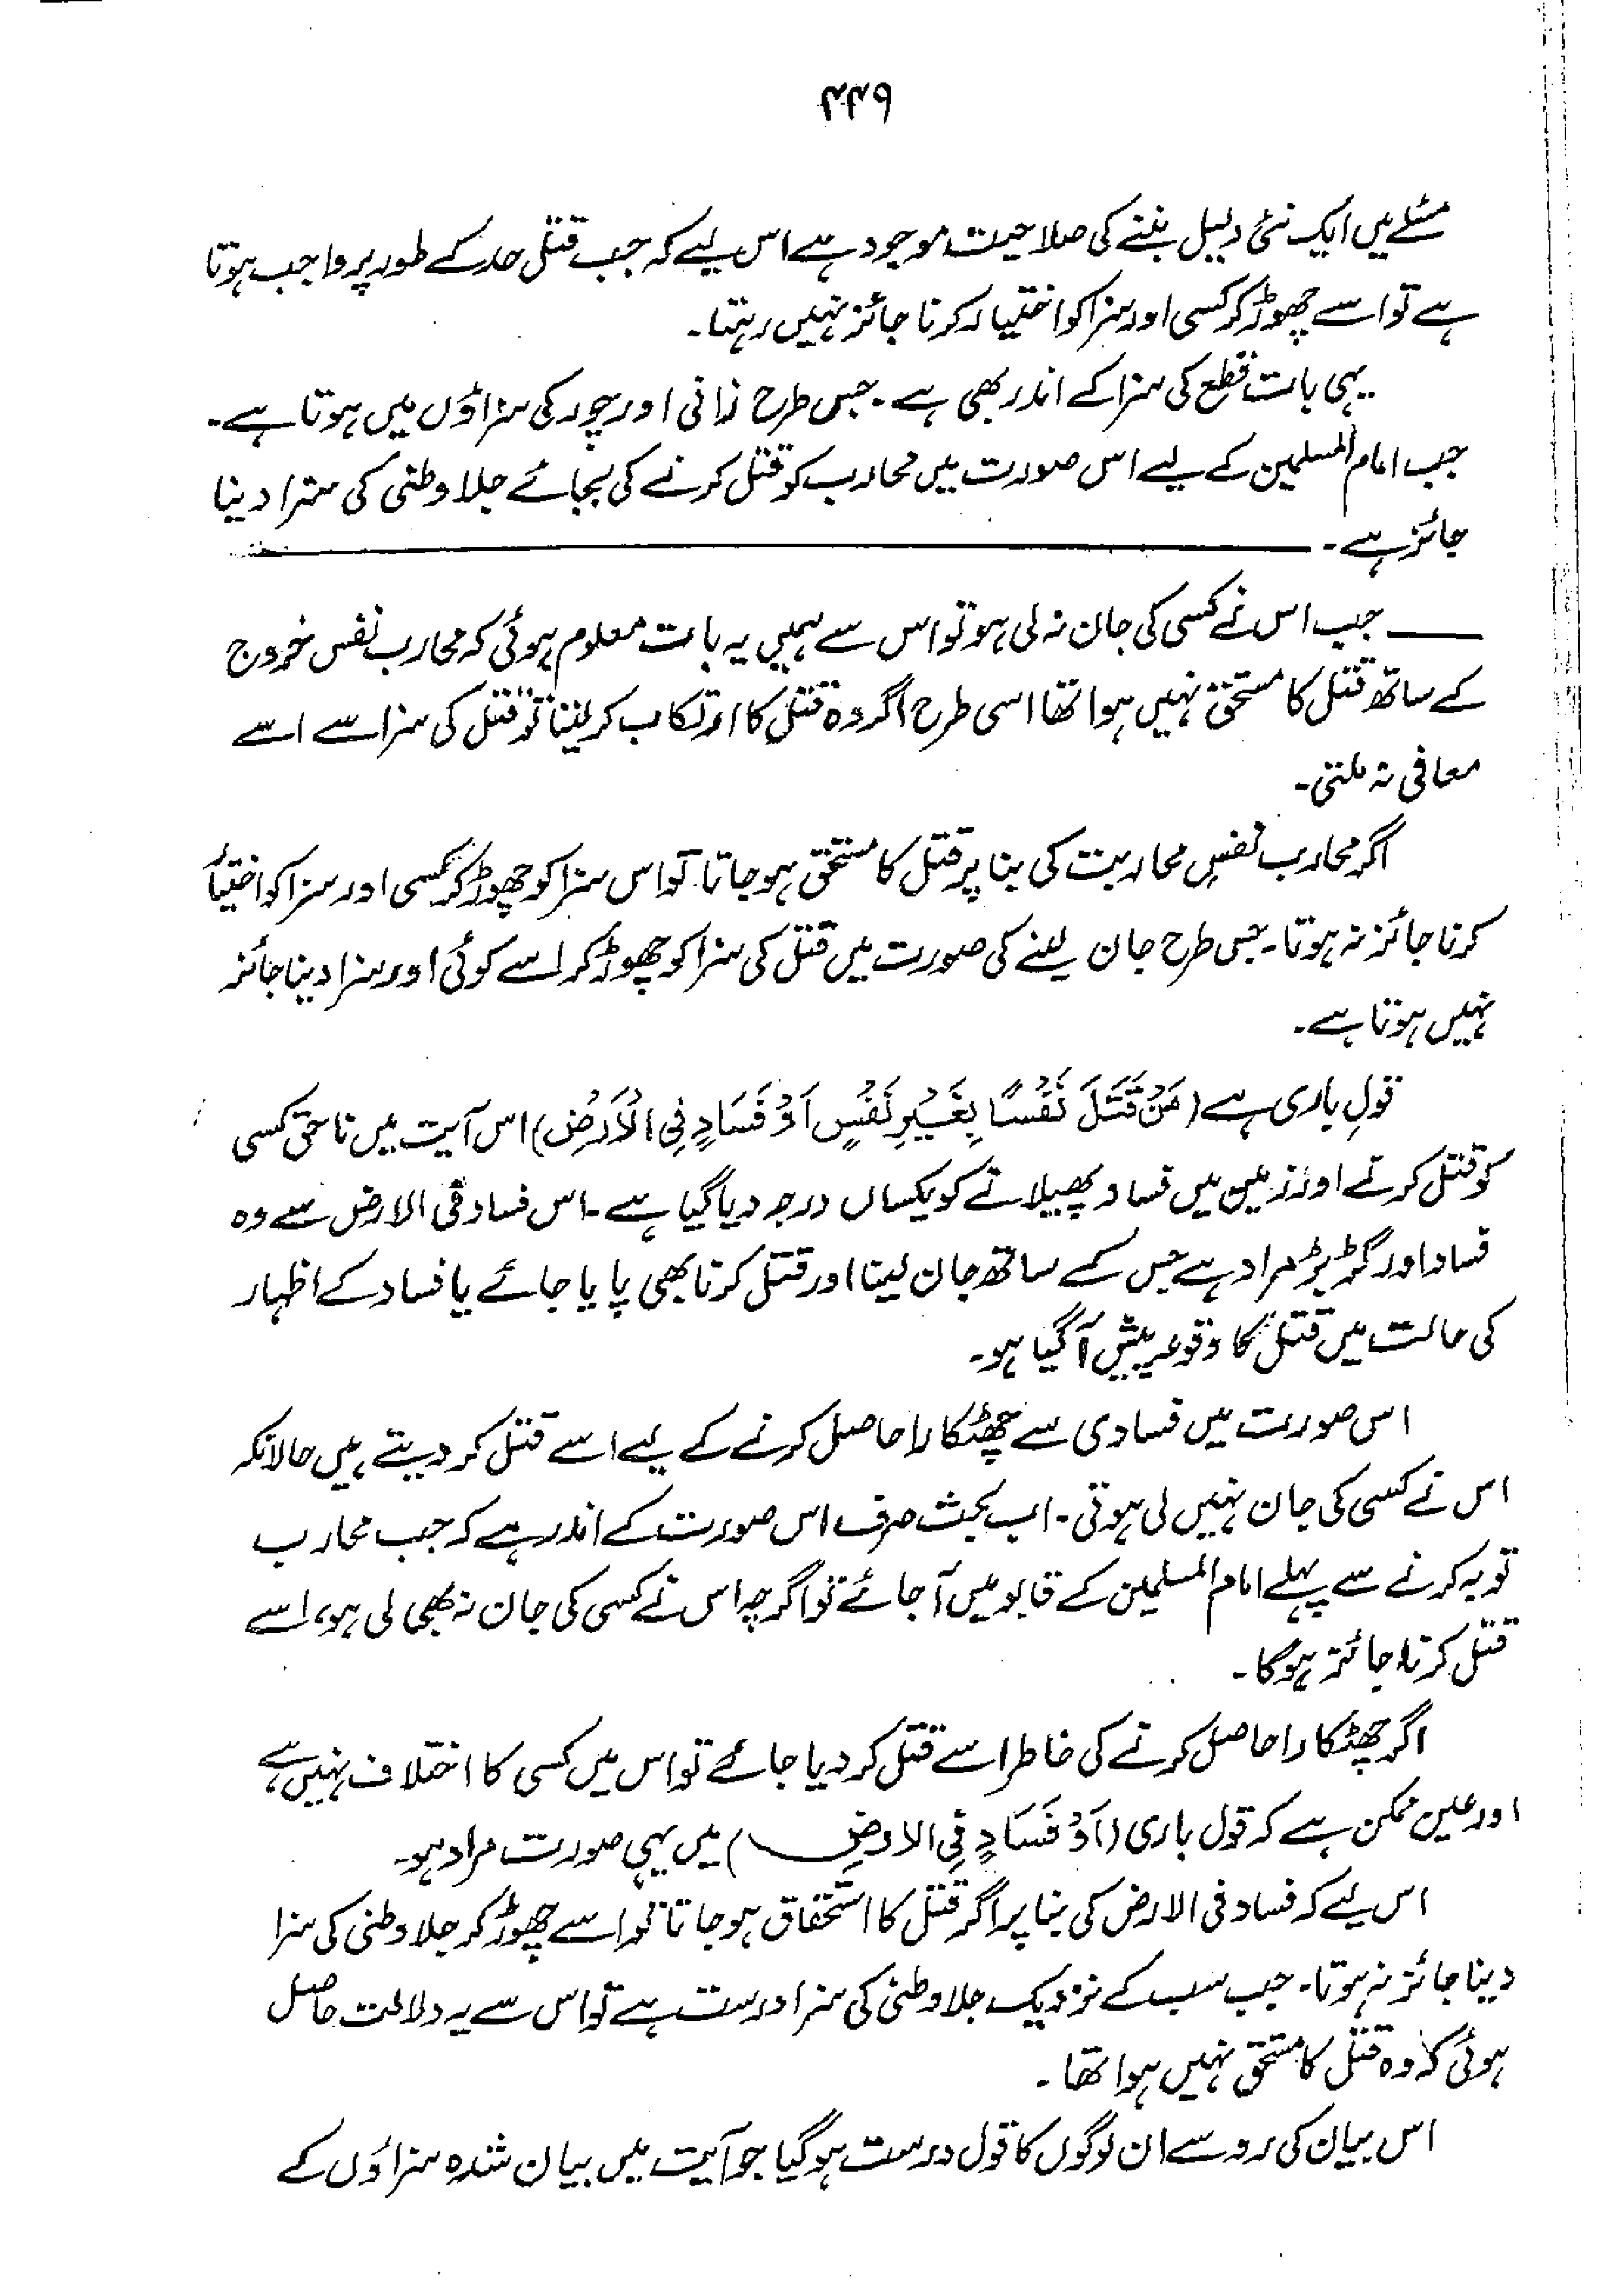 ۴۴۹
مسئلے میں ایک نئی دلیل بننے کی صلاحیت موجود ہے اس لیے کہ جب قتل حد کے طور پر واجب ہوتا
ہے تو اسے چھوڑ کر کسی اور سزا کو اختیار کرنا جائز نہیں رہتا۔
یہی بات قطع کی سزا کے اندر بھی ہے۔ جس طرح زانی اور چور کی سزاؤں میں ہوتا ہے۔
جب امام المسلمین کے لیے اس صورت میں محارب کو قتل کرنے کی بجائے جلا وطنی کی سزا دینا
جائز ہے۔
جب اس نے کسی کی جان نہ لی ہو تو اس سے ہمیں یہ بات معلوم ہوئی کہ محارب نفس خروج
کے ساتھ قتل کا مستحق نہیں ہوا تھا اسی طرح اگر وہ قتل کا ارتکاب کر لیتا تو قتل کی سزا سے اسے
معافی نہ ملتی۔
اگر محارب نفسِ محاربت کی بنا پر قتل کا مستحق ہو جاتا تو اس سزا کو چھوڑ کر کسی اور سزا کو اختیار
کرنا جائز نہ ہوتا۔ جس طرح جان لینے کی صورت میں قتل کی سزا کو چھوڑ کر اسے کوئی اور سزا دینا جائز
نہیں ہوتا ہے۔
قولِ باری ہے (مَنْ قَتَلَ نَفْسًا بِغَيْرِ نَفْسٍ اَوْ فَسَادٍ فِى الْاَرْضِ) اس آیت میں ناحق کسی
کو قتل کرنے اور زمین میں فساد پھیلانے کو یکساں درجہ دیا گیا ہے۔ اس فساد فی الارض سے وہ
فساد اور گڑبڑ مراد ہے جس کے ساتھ جان لینا اور قتل کرنا بھی پایا جائے یا فساد کے اظہار
کی حالت میں قتل کا وقوعہ پیش آ گیا ہو۔
اس صورت میں فسادی سے چھٹکارا حاصل کرنے کے لیے اسے قتل کر دیتے ہیں حالانکہ
اس نے کسی کی جان نہیں لی ہوتی۔ اب بحث صرف اس صورت کے اندر ہے کہ جب محارب
توبہ کرنے سے پہلے امام المسلمین کے قابو میں آ جائے تو اگرچہ اس نے کسی کی جان نہ بھی لی ہو، اسے
قتل کرنا جائز ہو گا۔
اگر چھٹکارا حاصل کرنے کی خاطر اسے قتل کر دیا جائے تو اس میں کسی کا اختلاف نہیں ہے
اور عین ممکن ہے کہ قول باری (اَوْ فَسَادٍ فِى الارضِ) میں یہی صورت مراد ہو۔
اس لیے کہ فساد فی الارض کی بنا پر اگر قتل کا استحقاق ہو جاتا تو اسے چھوڑ کر جلا وطنی کی سزا
دینا جائز نہ ہوتا۔ جب سب کے نزدیک جلا وطنی کی سزا درست ہے تو اس سے یہ دلالت حاصل
ہوئی کہ وہ قتل کا مستحق نہیں ہوا تھا۔
اس بیان کی رو سے ان لوگوں کا قول درست ہو گیا جو آیت میں بیان شدہ سزاؤں کے